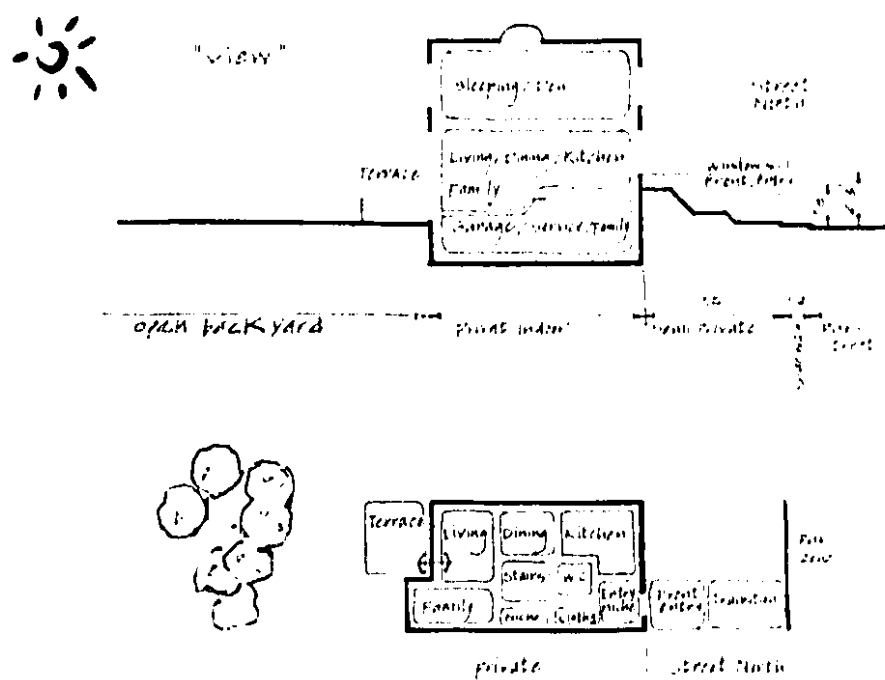 "view"
Sleeping / Den
Street
North
Living, Dining, Kitchen
Terrace
Family
Front Entry
Garage / Service / Family
open back yard
Private Indoor
Semi Private
Street
Terrace
Living
Dining
Kitchen
Stairs
WC
Family
Niche
Cloths
Entry
niche
Front
entry
Transition
private
Street North